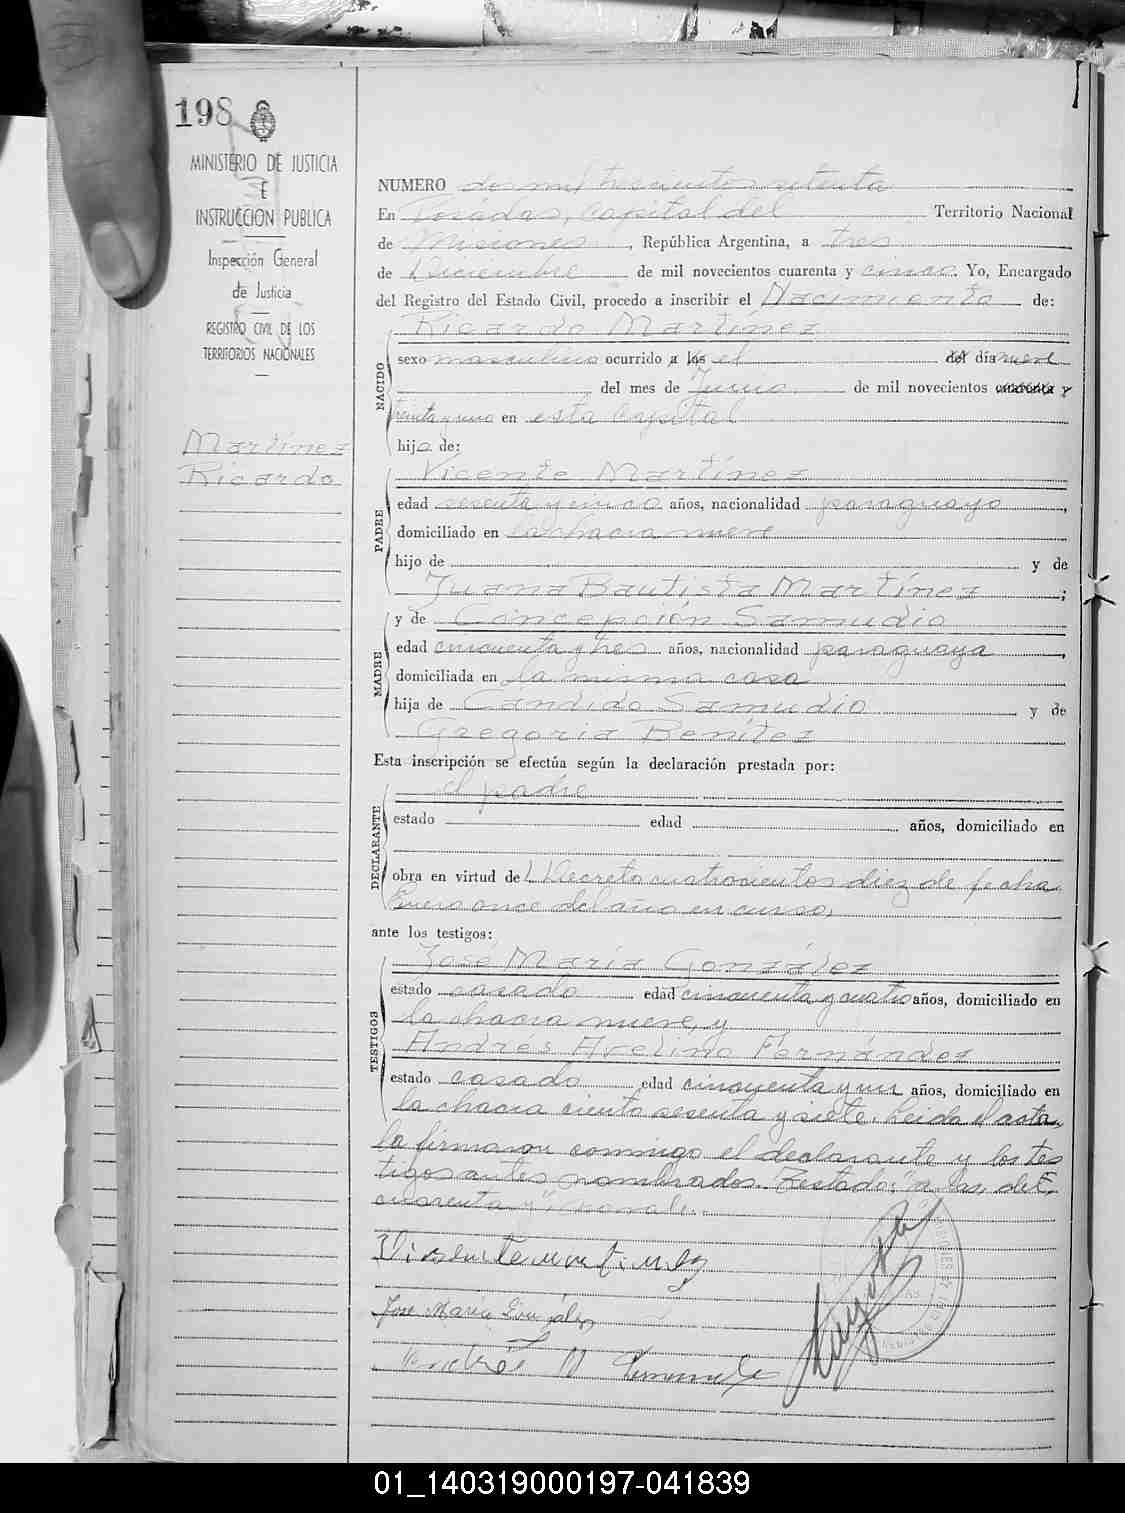 198
MINISTERIO DE JUSTICIA
E
INSTRUCCION PUBLICA
Inspección General
de Justicia
REGISTRO CIVIL DE LOS
TERRITORIOS NACIONALES
Martínez
Ricardo
NUMERO dos mil trescientos setenta
En Posadas, Capital del Territorio Nacional
de Misiones, República Argentina, a tres
de Diciembre de mil novecientos cuarenta y cinco. Yo, Encargado
del Registro del Estado Civil, procedo a inscribir el Nacimiento de:
NACIDO
Ricardo Martínez
sexo masculino ocurrido a las el del día nueve
del mes de Junio de mil novecientos cuarenta y
treinta y uno en esta Capital
hijo de:
PADRE
Vicente Martínez
edad sesenta y cinco años, nacionalidad paraguayo,
domiciliado en la chacra nueve
hijo de y de
Juana Bautista Martínez;
MADRE
y de Concepción Samudio
edad cincuenta y tres años, nacionalidad paraguaya,
domiciliada en la misma casa
hija de Candido Samudio y de
Gregoria Benítez
Esta inscripción se efectúa según la declaración prestada por:
DECLARANTE
el padre
estado edad años, domiciliado en
obra en virtud del Decreto cuatrocientos diez de fecha
Enero once del año en curso,
ante los testigos:
TESTIGOS
José María González
estado casado edad cincuenta y cuatro años, domiciliado en
la chacra nueve, y
Andrés Avelino Fernández
estado casado edad cincuenta y un años, domiciliado en
la chacra ciento sesenta y siete. Leida el acta,
la firmaron conmigo el declarante y los tes
tigos antes nombrados. Testado: "a las, del,
cuarenta y"
José María González
01_140319000197-041839